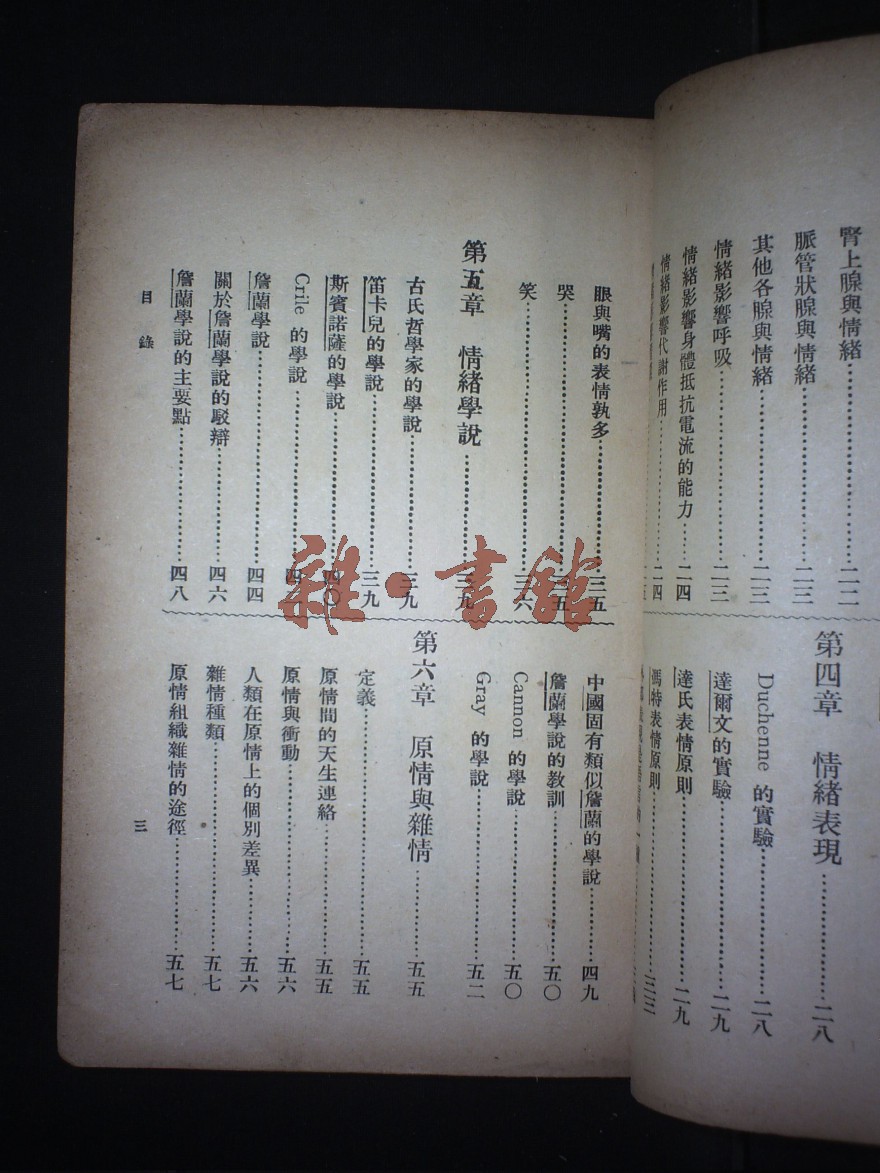 腎上腺與情緒……二二
脈管狀腺與情緒……二三
其他各腺與情緒……二三
情緒影響呼吸……二三
情緒影響身體抵抗電流的能力……二四
情緒影響代謝作用……二四
第四章 情緒表現……二八
Duchenne 的實驗……二八
達爾文的實驗……二九
達氏表情原則……二九
馮特表情原則……三三
眼與嘴的表情孰多……三五
哭……三五
笑……三六
第五章 情緒學說……三九
古氏哲學家的學說……三九
笛卡兒的學說……三九
斯賓諾薩的學說……四〇
Crile 的學說……四
詹蘭學說……四四
關於詹蘭學說的駁辯……四六
詹蘭學說的主要點……四八
中國固有類似詹蘭的學說……四九
詹蘭學說的教訓……五〇
Cannon 的學說……五〇
Gray 的學說……五二
第六章 原情與雜情……五五
定義……五五
原情間的天生連絡……五五
原情與衝動……五六
人類在原情上的個別差異……五六
雜情種類……五七
原情組織雜情的途徑……五七
目錄
三
雜·書館